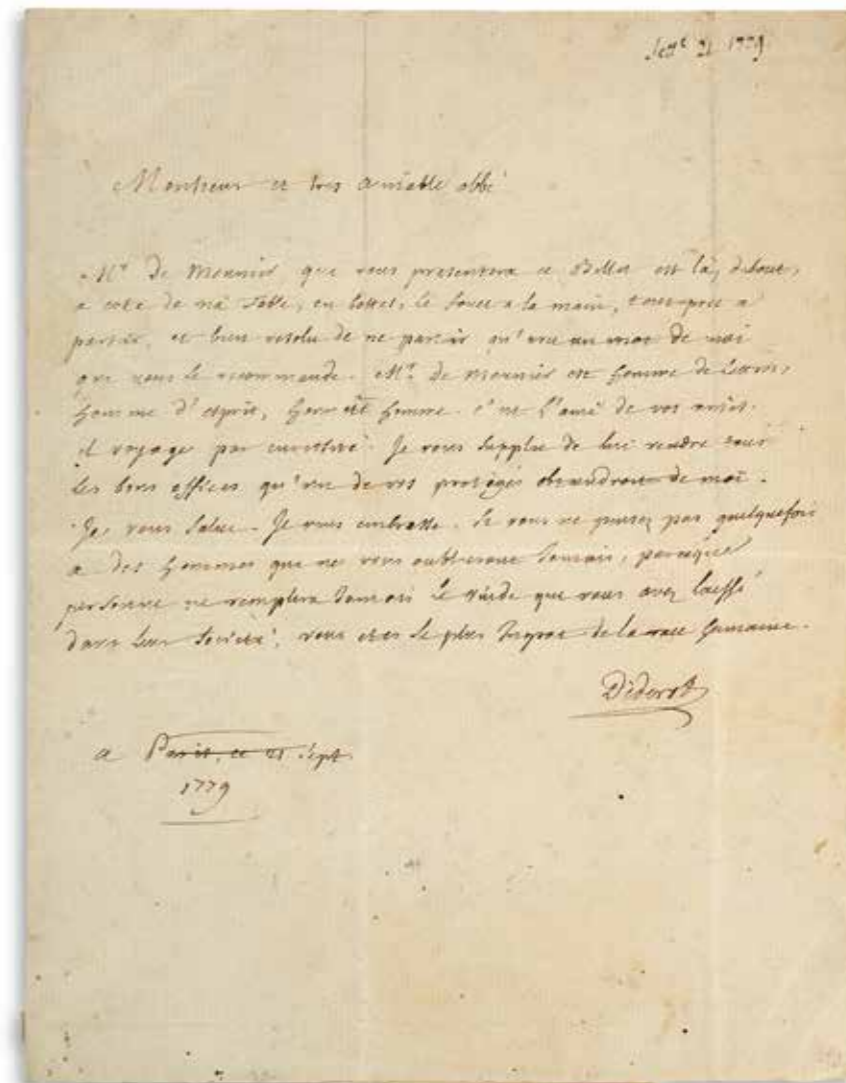 Sept^e 21 1779
Monsieur et tres aimable abbé
Mr. de Meunier que vous presentera ce Billet est là, debout,
a coté de ma table, en bottes, le fouet a la main, tout pret a
partir, et bien resolu de ne partir qu'avec un mot de moi
que vous le recommande. Mr. de Meunier est homme de Lettres,
homme d'esprit, honnete homme. c'est l'ami de vos amis.
il voyage par curiosité. Je vous supplie de lui rendre tous
les bons offices qu'un de vos protegés obtiendroit de moi.
Je vous salue. Je vous embrasse. Si vous ne pensez pas quelquefois
a des hommes que ne vous oublieront Jamais, parceque
personne ne remplira Jamais le vuide que vous avez laissé
dans leur societé, vous etes le plus Ingrat de la race humaine.
Diderot
a Paris, ce 21 sept.
1779